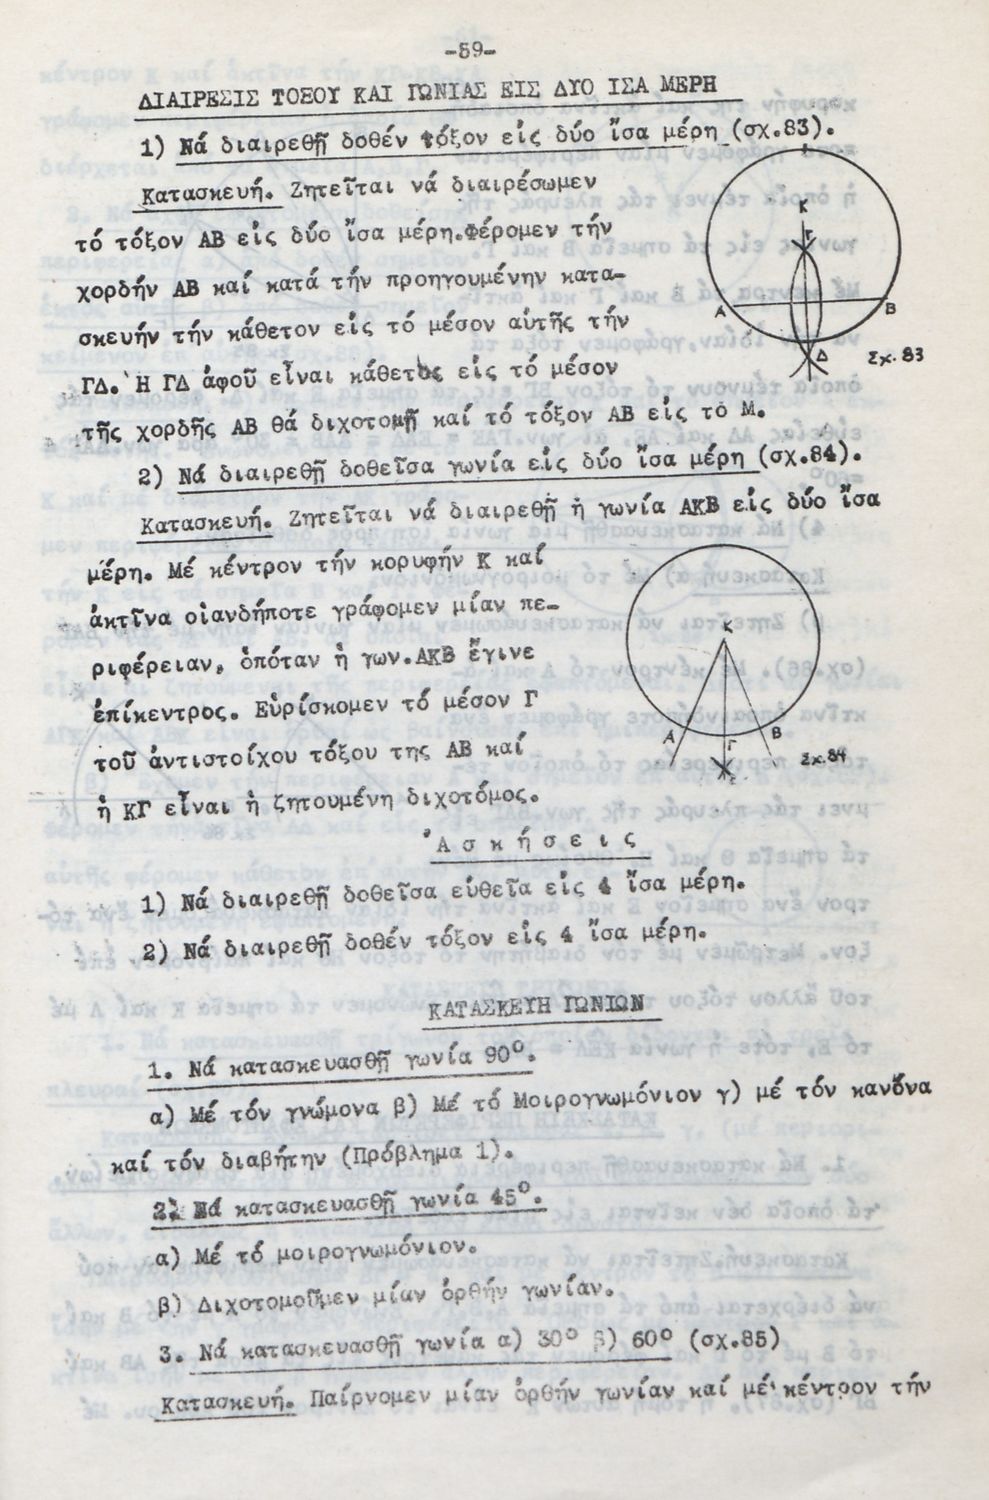 -59-
ΔΙΑΙΡΕΣΙΣ ΤΟΞΟΥ ΚΑΙ ΓΩΝΙΑΣ ΕΙΣ ΔΥΟ ΙΣΑ ΜΕΡΗ
1) Νά διαιρεθῇ δοθέν τόξον εἰς δύο ἴσα μέρη (σχ.83).
Κατασκευή. Ζητεῖται νά διαιρέσωμεν
τό τόξον ΑΒ εἰς δύο ἴσα μέρη.Φέρομεν τήν
χορδήν ΑΒ καί κατά τήν προηγουμένην κατα-
σκευήν τήν κάθετον εἰς τό μέσον αὐτῆς τήν
ΓΔ. Ἡ ΓΔ ἀφοῦ εἶναι κάθετος εἰς τό μέσον
τῆς χορδῆς ΑΒ θά διχοτομῇ καί τό τόξον ΑΒ εἰς τό Μ.
Κ
Γ
Α
Β
Δ
Σχ. 83
2) Νά διαιρεθῇ δοθεῖσα γωνία εἰς δύο ἴσα μέρη (σχ.84).
Κατασκευή. Ζητεῖται νά διαιρεθῇ ἡ γωνία ΑΚΒ εἰς δύο ἴσα
μέρη. Μέ κέντρον τήν κορυφήν Κ καί
ἀκτῖνα οἱανδήποτε γράφομεν μίαν πε-
ριφέρειαν, ὁπόταν ἡ γων.ΑΚΒ ἔγινε
ἐπίκεντρος. Εὑρίσκομεν τό μέσον Γ
τοῦ ἀντιστοίχου τόξου της ΑΒ καί
ἡ ΚΓ εἶναι ἡ ζητουμένη διχοτόμος.
Κ
Α
Γ
Β
Σχ.84
Ἀ σ κ ή σ ε ι ς
1) Νά διαιρεθῇ δοθεῖσα εὐθεῖα εἰς 4 ἴσα μέρη.
2) Νά διαιρεθῇ δοθέν τόξον εἰς 4 ἴσα μέρη.
ΚΑΤΑΣΚΕΥΗ ΓΩΝΙΩΝ
1. Νά κατασκευασθῇ γωνία 90°.
α) Μέ τόν γνώμονα β) Μέ τό Μοιρογνωμόνιον γ) μέ τόν κανόνα
καί τόν διαβήτην (Πρόβλημα 1).
2. Νά κατασκευασθῇ γωνία 45°.
α) Μέ τό μοιρογνωμόνιον.
β) Διχοτομοῦμεν μίαν ὀρθήν γωνίαν.
3. Νά κατασκευασθῇ γωνία α) 30° β) 60° (σχ.85)
Κατασκευή. Παίρνομεν μίαν ὀρθήν γωνίαν καί μέ κέντρον τήν